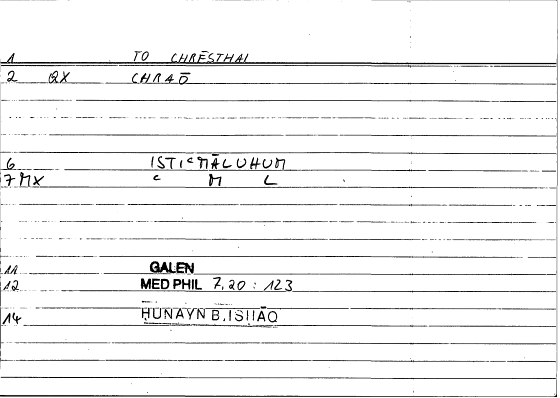 1 TO CHRĒSTHAI
2 QX CHRAŌ
6 ISTIᶜMĀLUHUM
7 MX ᶜ M L
11 GALEN
12 MED PHIL 7,20 : 123
14 ḤUNAYN B. ISḤĀQ